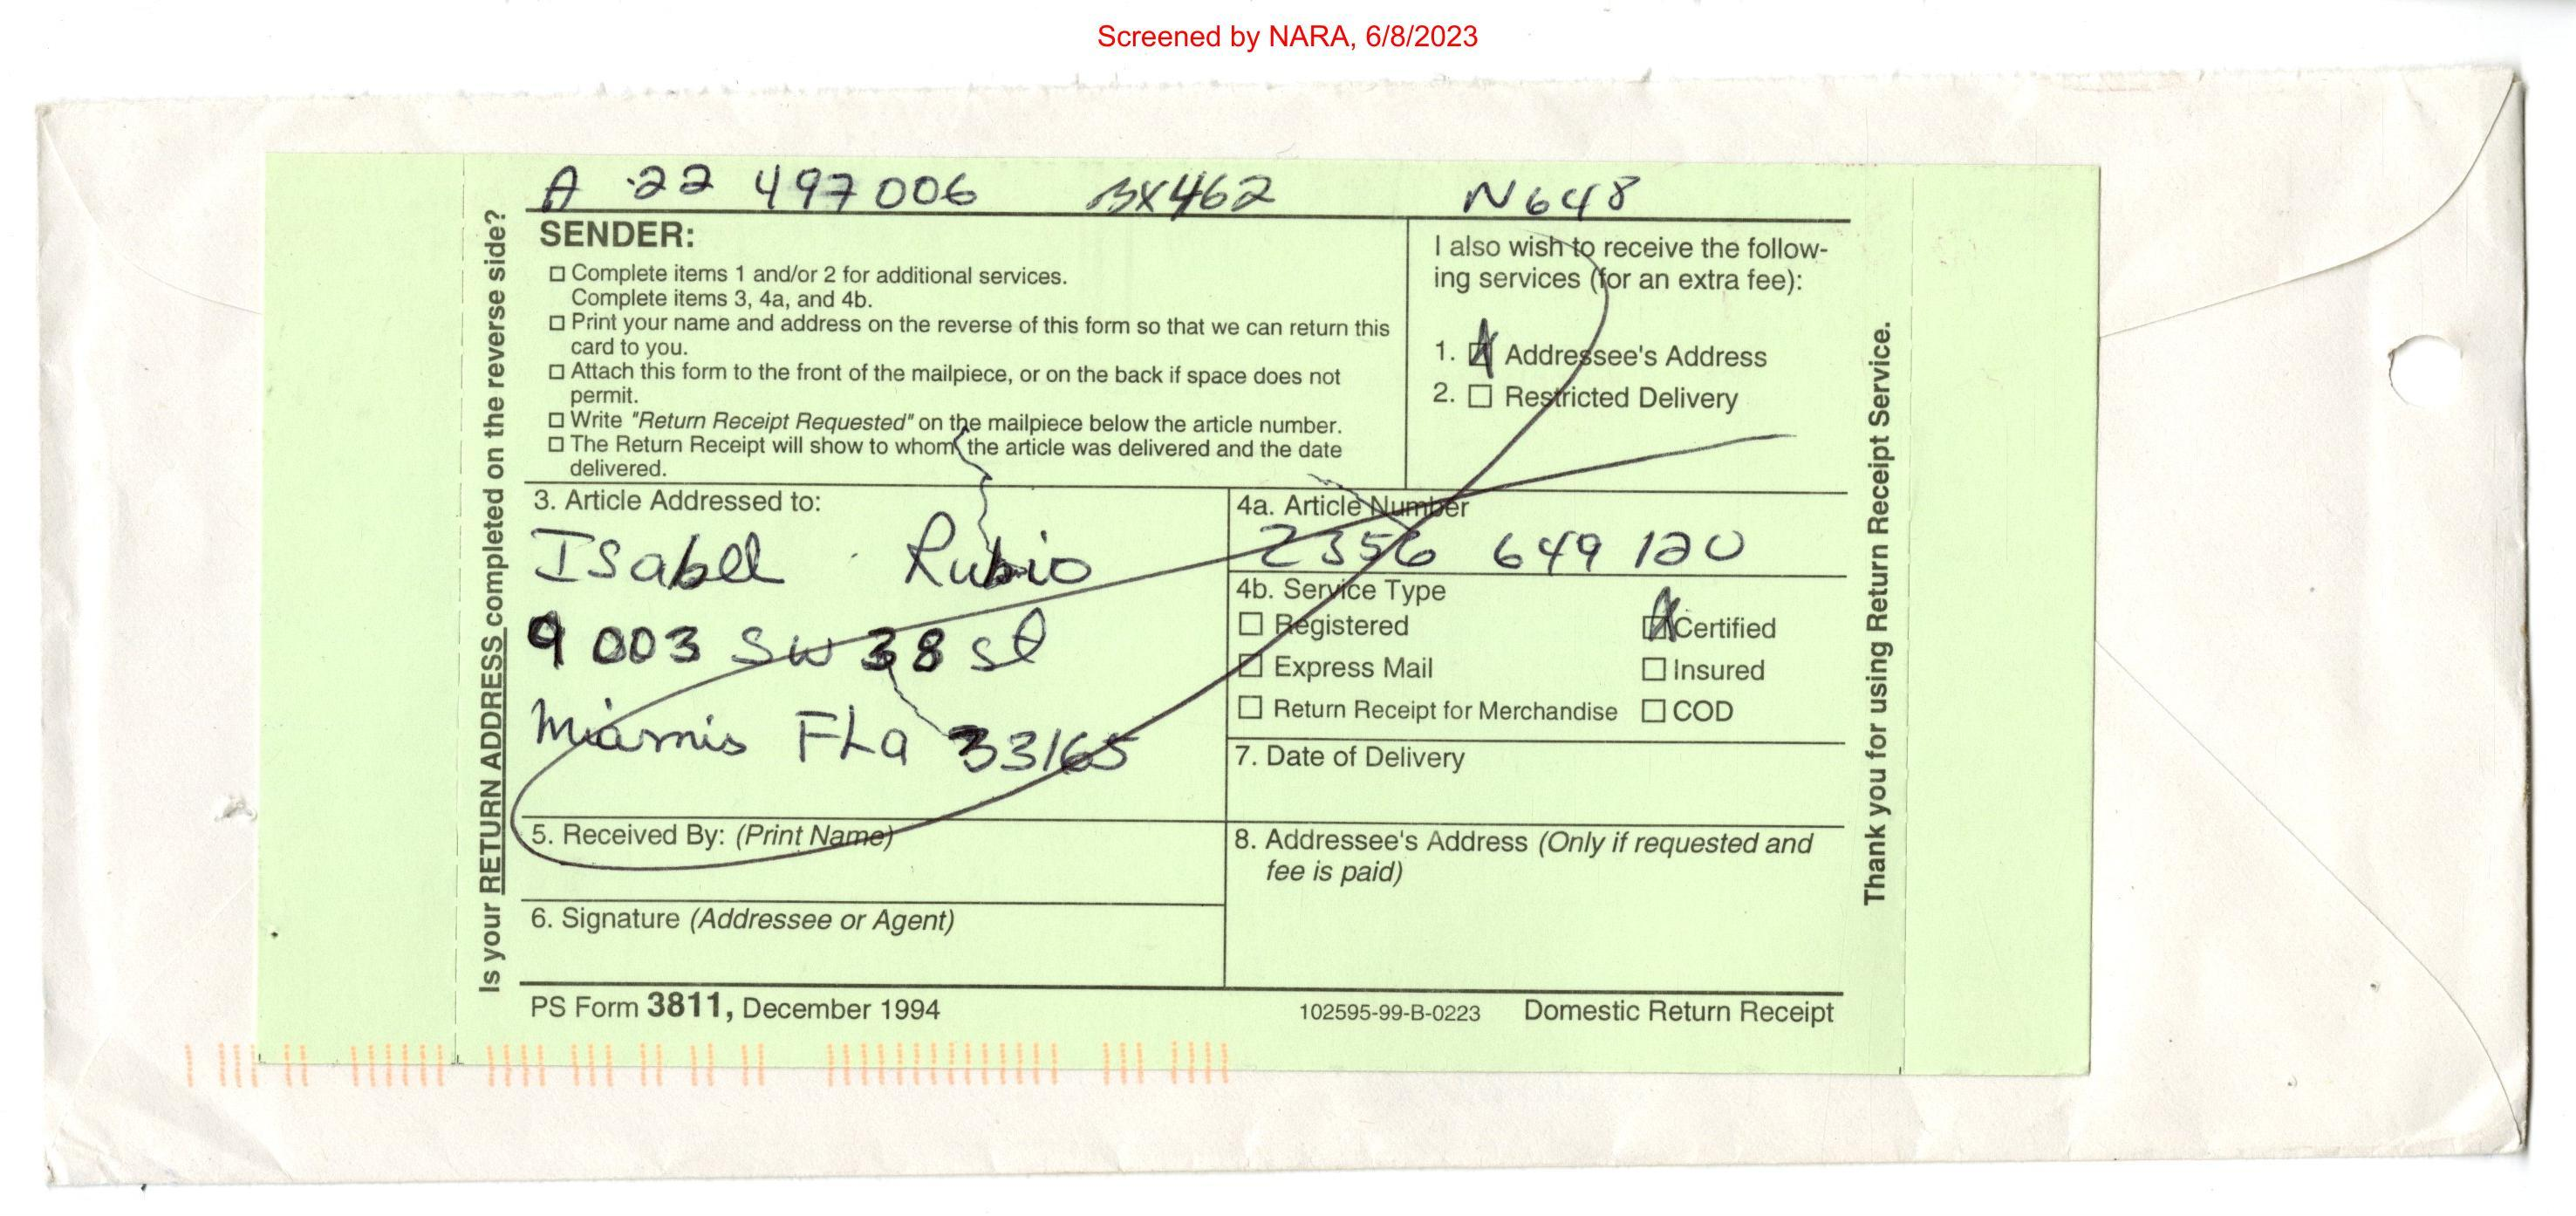 Screened by NARA, 6/8/2023
A 22 497 006 BX462 N648
Is your RETURN ADDRESS completed on the reverse side?
SENDER:
Complete items 1 and/or 2 for additional services.
Complete items 3, 4a, and 4b.
Print your name and address on the reverse of this form so that we can return this
card to you.
Attach this form to the front of the mailpiece, or on the back if space does not
permit.
Write "Return Receipt Requested" on the mailpiece below the article number.
The Return Receipt will show to whom the article was delivered and the date
delivered.
I also wish to receive the follow-
ing services (for an extra fee):
1. Addressee's Address
2. Restricted Delivery
3. Article Addressed to:
Isabel Rubio
9003 SW 38 st
Miamis FLa 33165
4a. Article Number
2356 649 120
4b. Service Type
Registered Certified
Express Mail Insured
Return Receipt for Merchandise COD
7. Date of Delivery
5. Received By: (Print Name)
8. Addressee's Address (Only if requested and
fee is paid)
6. Signature (Addressee or Agent)
PS Form 3811, December 1994 102595-99-B-0223 Domestic Return Receipt
Thank you for using Return Receipt Service.